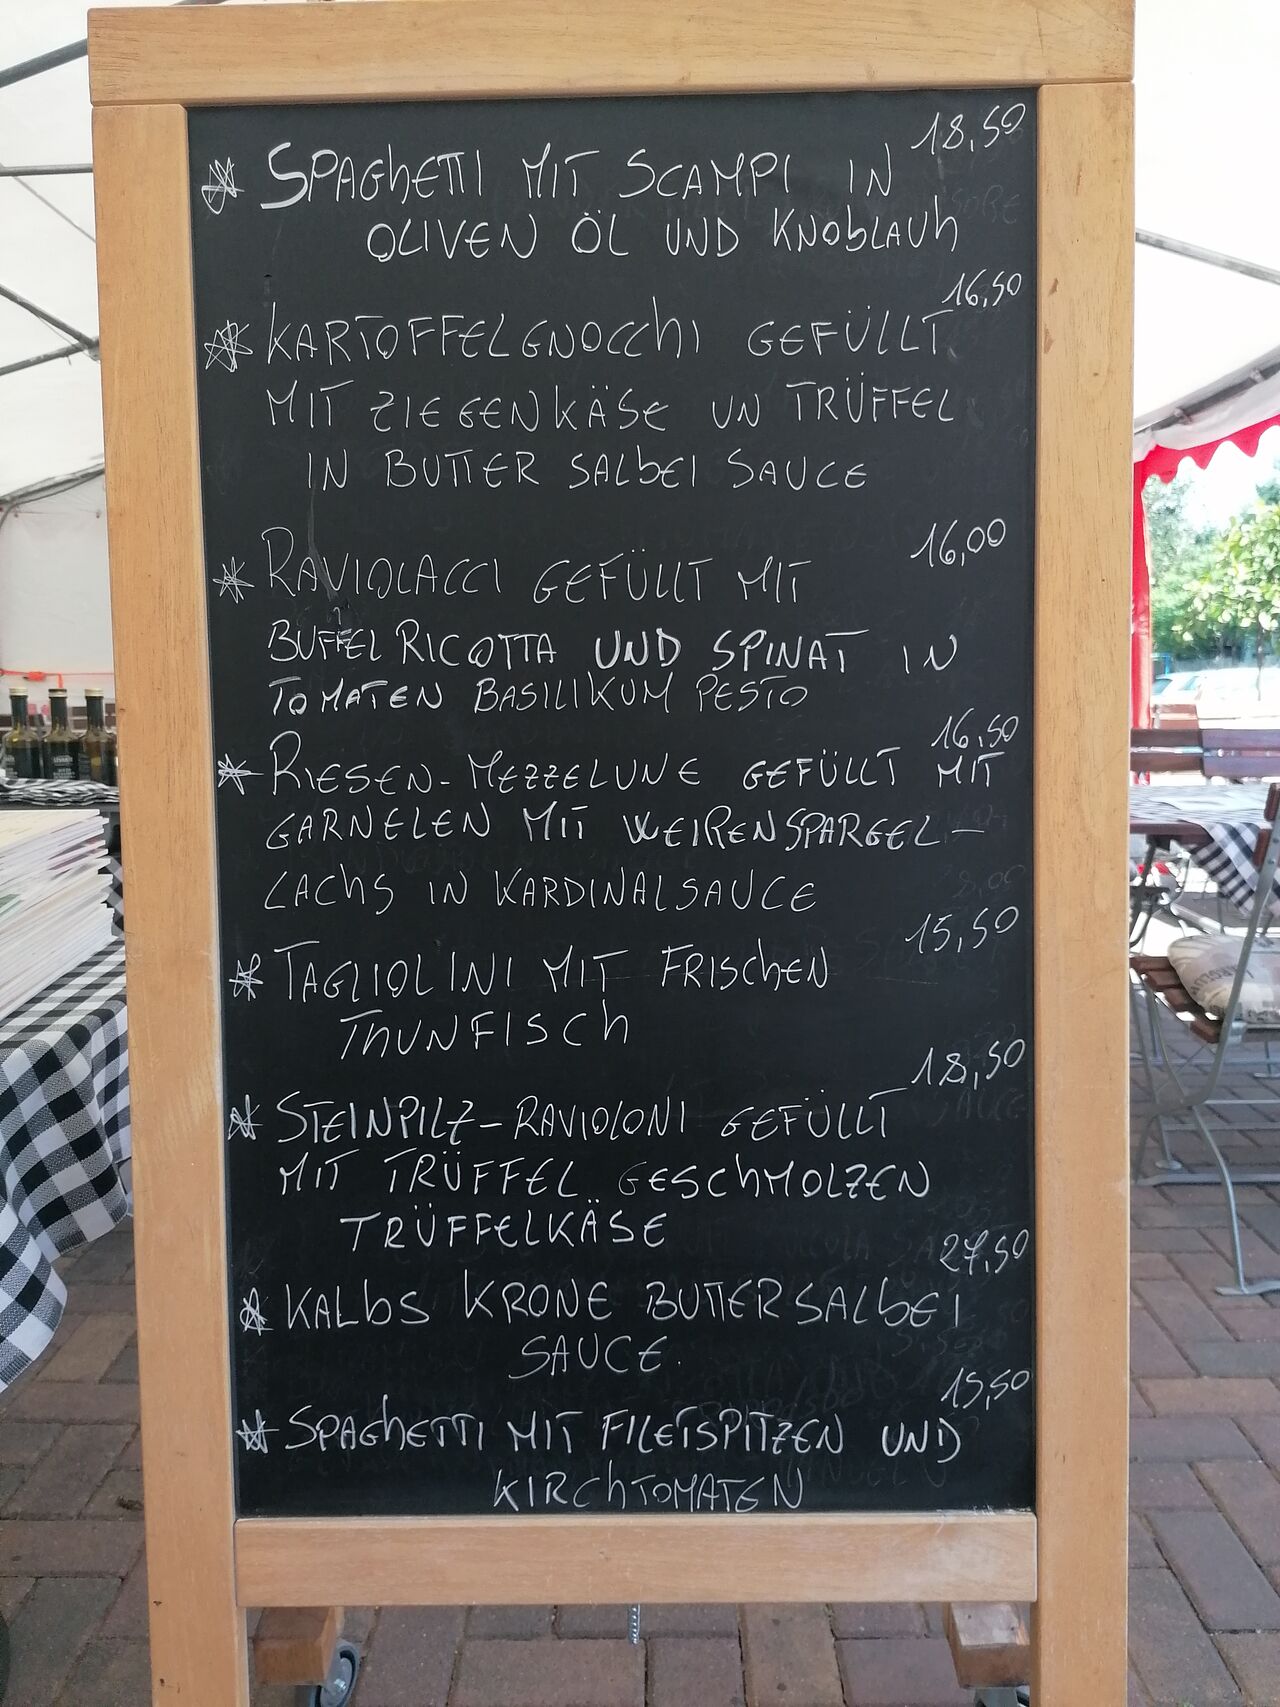 18,50
SPAGhETTI MIT SCAMPI IN
OLIVEN ÖL UND KNOBLAUh
16,50
KARTOFFELGNOCChI GEFÜLLT
MIT ZIEGENKÄSE UN TRÜFFEL
IN BUTTER SALbEI SAUCE
16,00
RAVIOLACCI GEFÜLLT MIT
BUFFEL RICOTTA UND SPINAT IN
TOMATEN BASILIKUM PESTO
16,50
RIESEN-MEZZELUNE GEFÜLLT MIT
GARNELEN MIT WEIßEN SPARGEL-
LAChS IN KARDINALSAUCE
15,50
TAGLIOLINI MIT FRISChEN
ThUNFISCh
18,50
STEINPILZ-RAVIOLONI GEFÜLLT
MIT TRÜFFEL GESChMOLZEN
TRÜFFELKÄSE
27,50
KALbS KRONE BUTTERSALbEI
SAUCE.
15,50
SPAGhETTI MIT FILETSPITZEN UND
KIRChTOMATEN